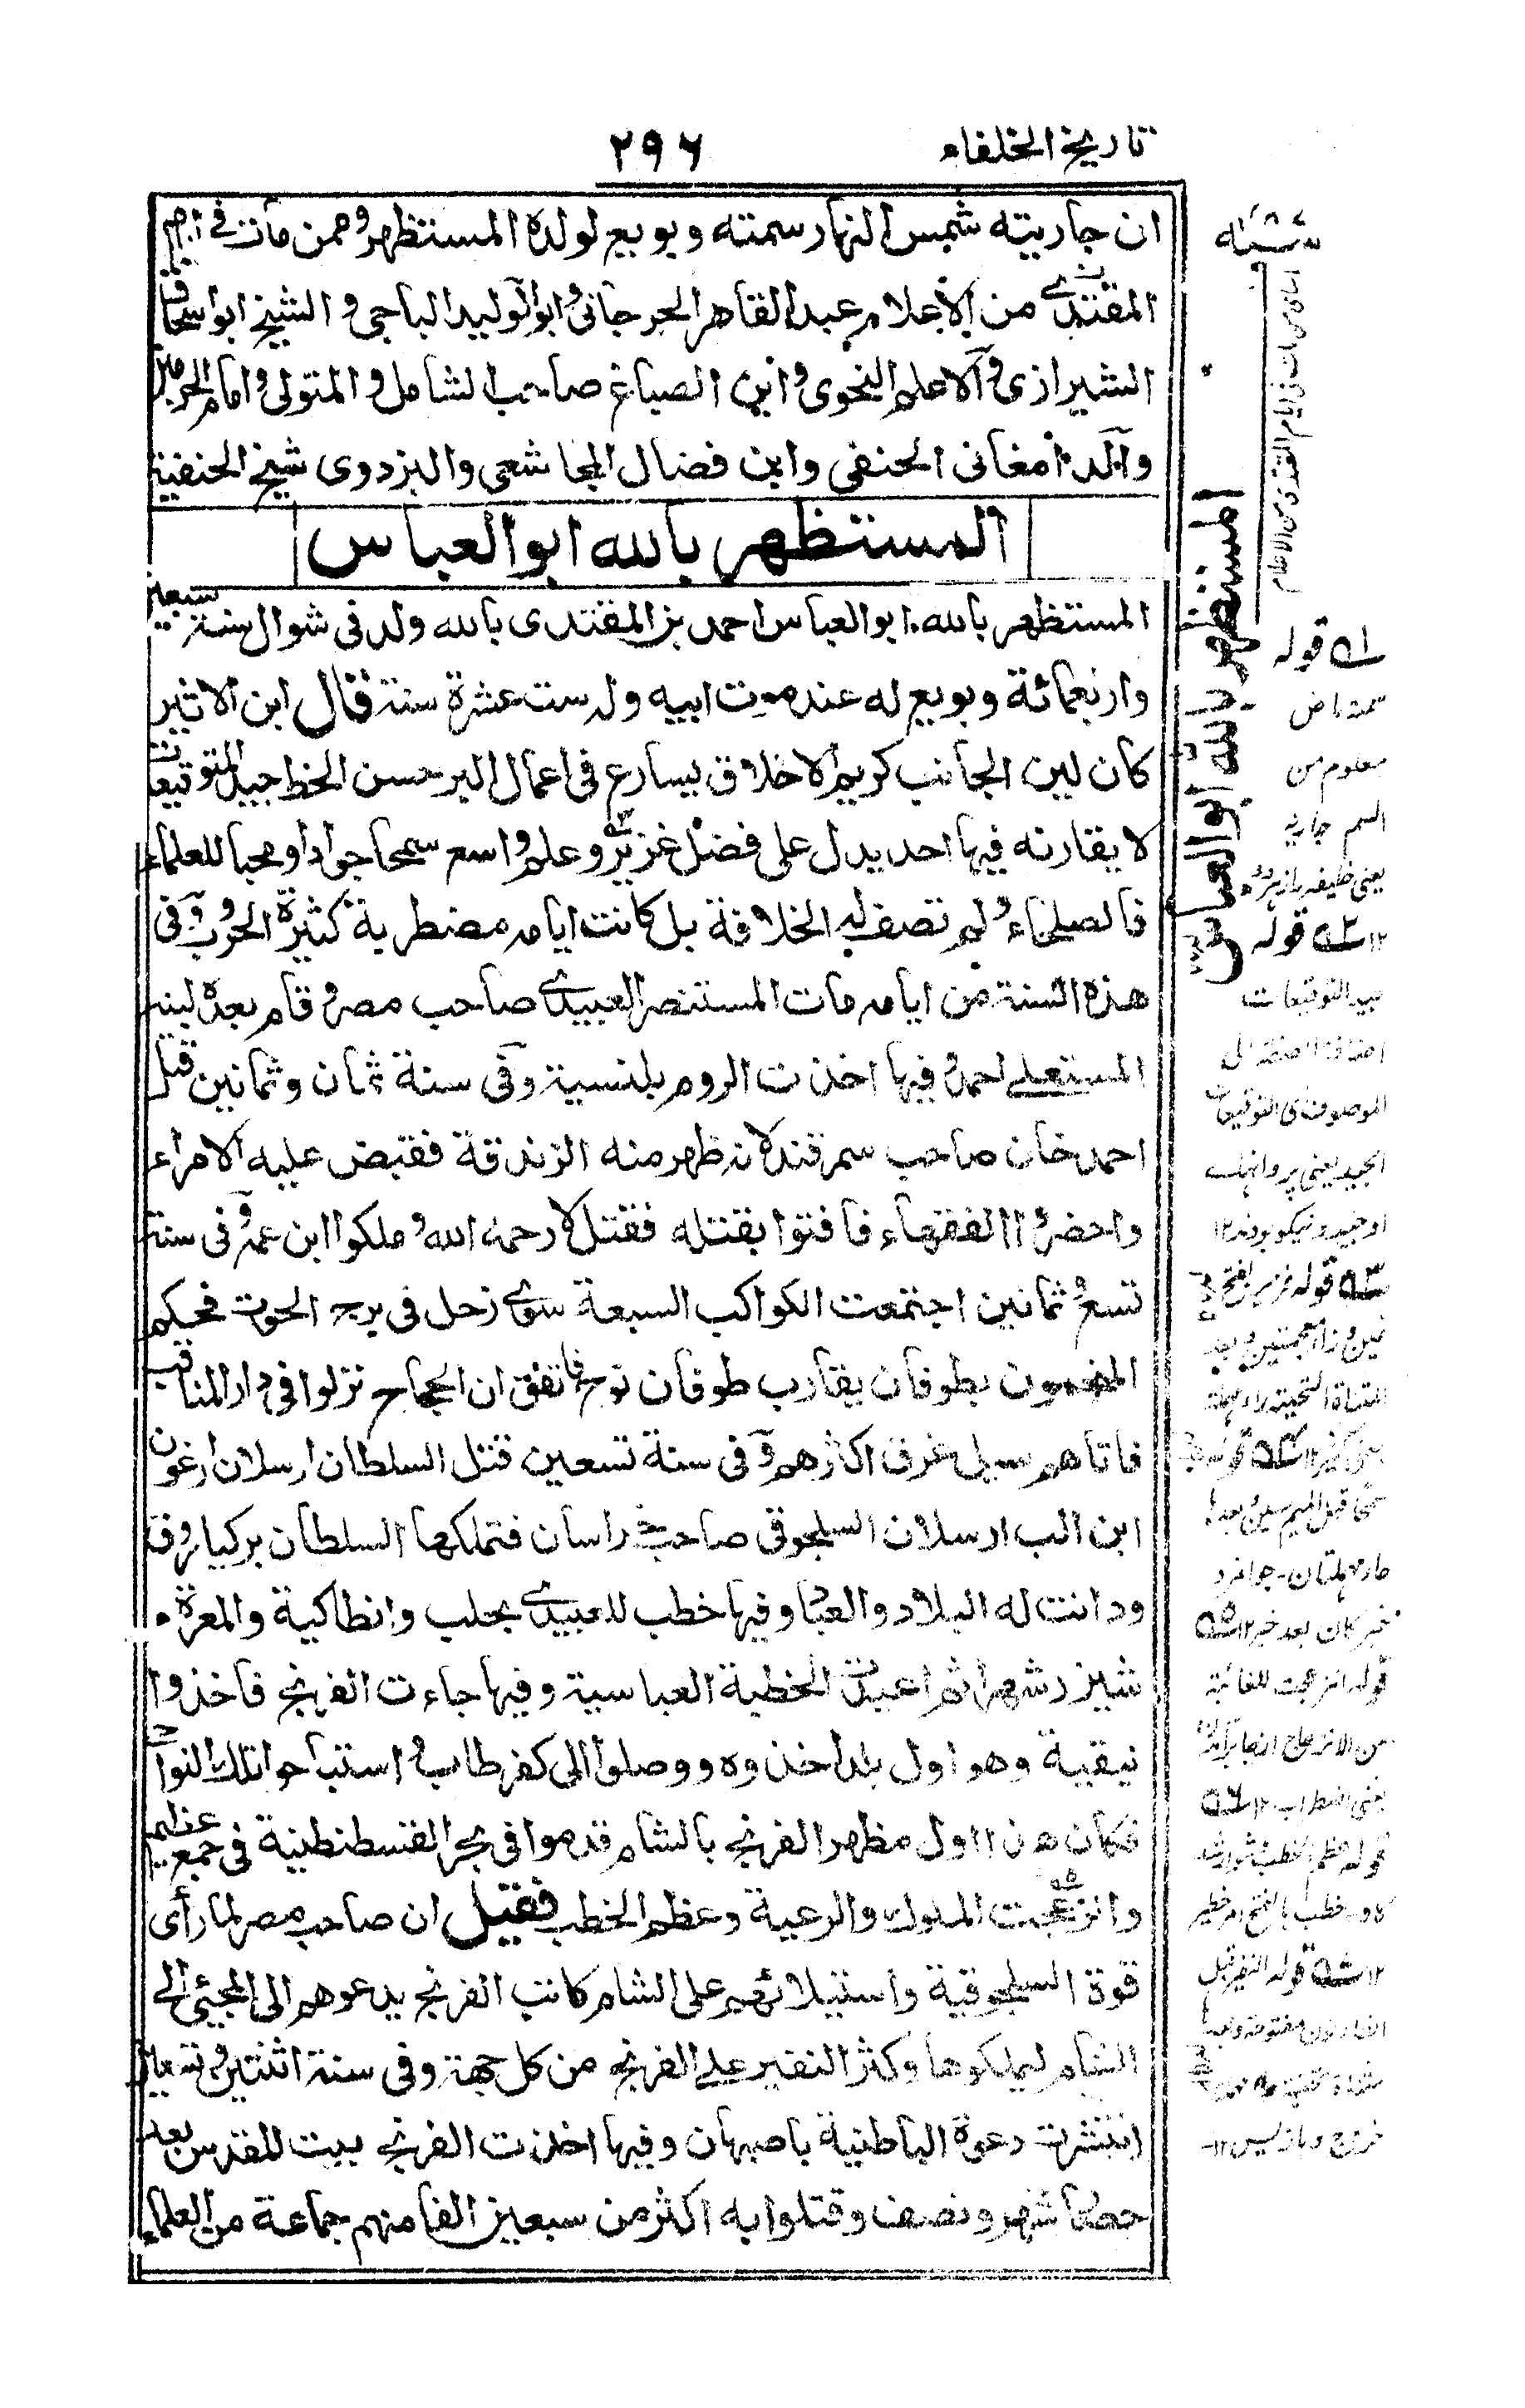 تاريخ الخلفاء
۲۹۶
ان جاريته شمس النهار سمته وبويع لولده المستظهر وممن مات في ايام
المقتدي من الاعلام عبد القاهر الجرجاني وابو الوليد الباجي والشيخ ابو اسحاق
الشيرازي والاعلم النحوي وابن الصباغ صاحب الشامل والمتولي وامام الحرمين
والدامغاني الحنفي وابن فضال المجاشعي والبزدوي شيخ الحنفية
المستظهر بالله ابو العباس
المستظهر بالله ابو العباس احمد بن المقتدى بالله ولد فى شوال سنة سبعين
واربعمائة وبويع له عند موت ابيه وله ست عشرة سنة قال ابن الاثير
كان لين الجانب كريم الاخلاق يسارع فى اعمال البر حسن الخط جيد التوقيعات
لا يقاربه فيها احد يدل على فضل غزير وعلم واسع سمحا جوادا ومحبا للعلماء
والصلحاء ولم تصف له الخلافة بل كانت ايامه مضطربة كثيرة الحروب وفى
هذه السنة من ايامه مات المستنصر العبيدي صاحب مصر وقام بعده ابنه
المستعلي احمد وفيها اخذت الروم بلنسية وفى سنة ثمان وثمانين قتل
احمد خان صاحب سمرقند لانه ظهر منه الزندقة فقبض عليه الامراء
واحضروا الفقهاء فافتوا بقتله فقتل لا رحمه الله وملكوا ابن عمه وفى سنة
تسع وثمانين اجتمعت الكواكب السبعة سوى زحل فى برج الحوت فحكم
المنجمون بطوفان يقارب طوفان نوح فاتفق ان الحجاج نزلوا فى دار المناقب
فاتاهم سيل غرق اكثرهم وفى سنة تسعين قتل السلطان ارسلان ارغون
ابن الب ارسلان السلجوقى صاحب خراسان فتملكها السلطان بركياروق
ودانت له البلاد والعباد وفيها خطب للعبيدي بحلب وانطاكية والمعرة و
شيزر شهرا ثم اعيدت الخطبة العباسية وفيها جاءت الفرنج فاخذوا
نيقية وهو اول بلد اخذوه ووصلوا الى كفرطاب واستباحوا تلك النواحي
فكان هذا اول مظهر الفرنج بالشام قدموا فى بحر القسطنطينية فى جمع عظيم
وانزعجت الملوك والرعية وعظم الخطب فقيل ان صاحب مصر لما رأى
قوة السلجوقية واستيلائهم على الشام كاتب الفرنج يدعوهم الى المجئ الى
الشام ليملكوها وكثر النفير على الفرنج من كل جهة وفى سنة اثنتين وتسعين
انتشرت دعوة الباطنية باصبهان وفيها اخذت الفرنج بيت المقدس بعد
حصار شهر ونصف وقتلوا به اكثر من سبعين الفا منهم جماعة من العلماء
المستظهر بالله ابو العباس
قوله
سمته ماض
معلوم من
السم جاريه
قوله
جيد التوقيعات
اضافة الصفة الى
الموصوف اى التوقيعات
قوله غزير بفتح